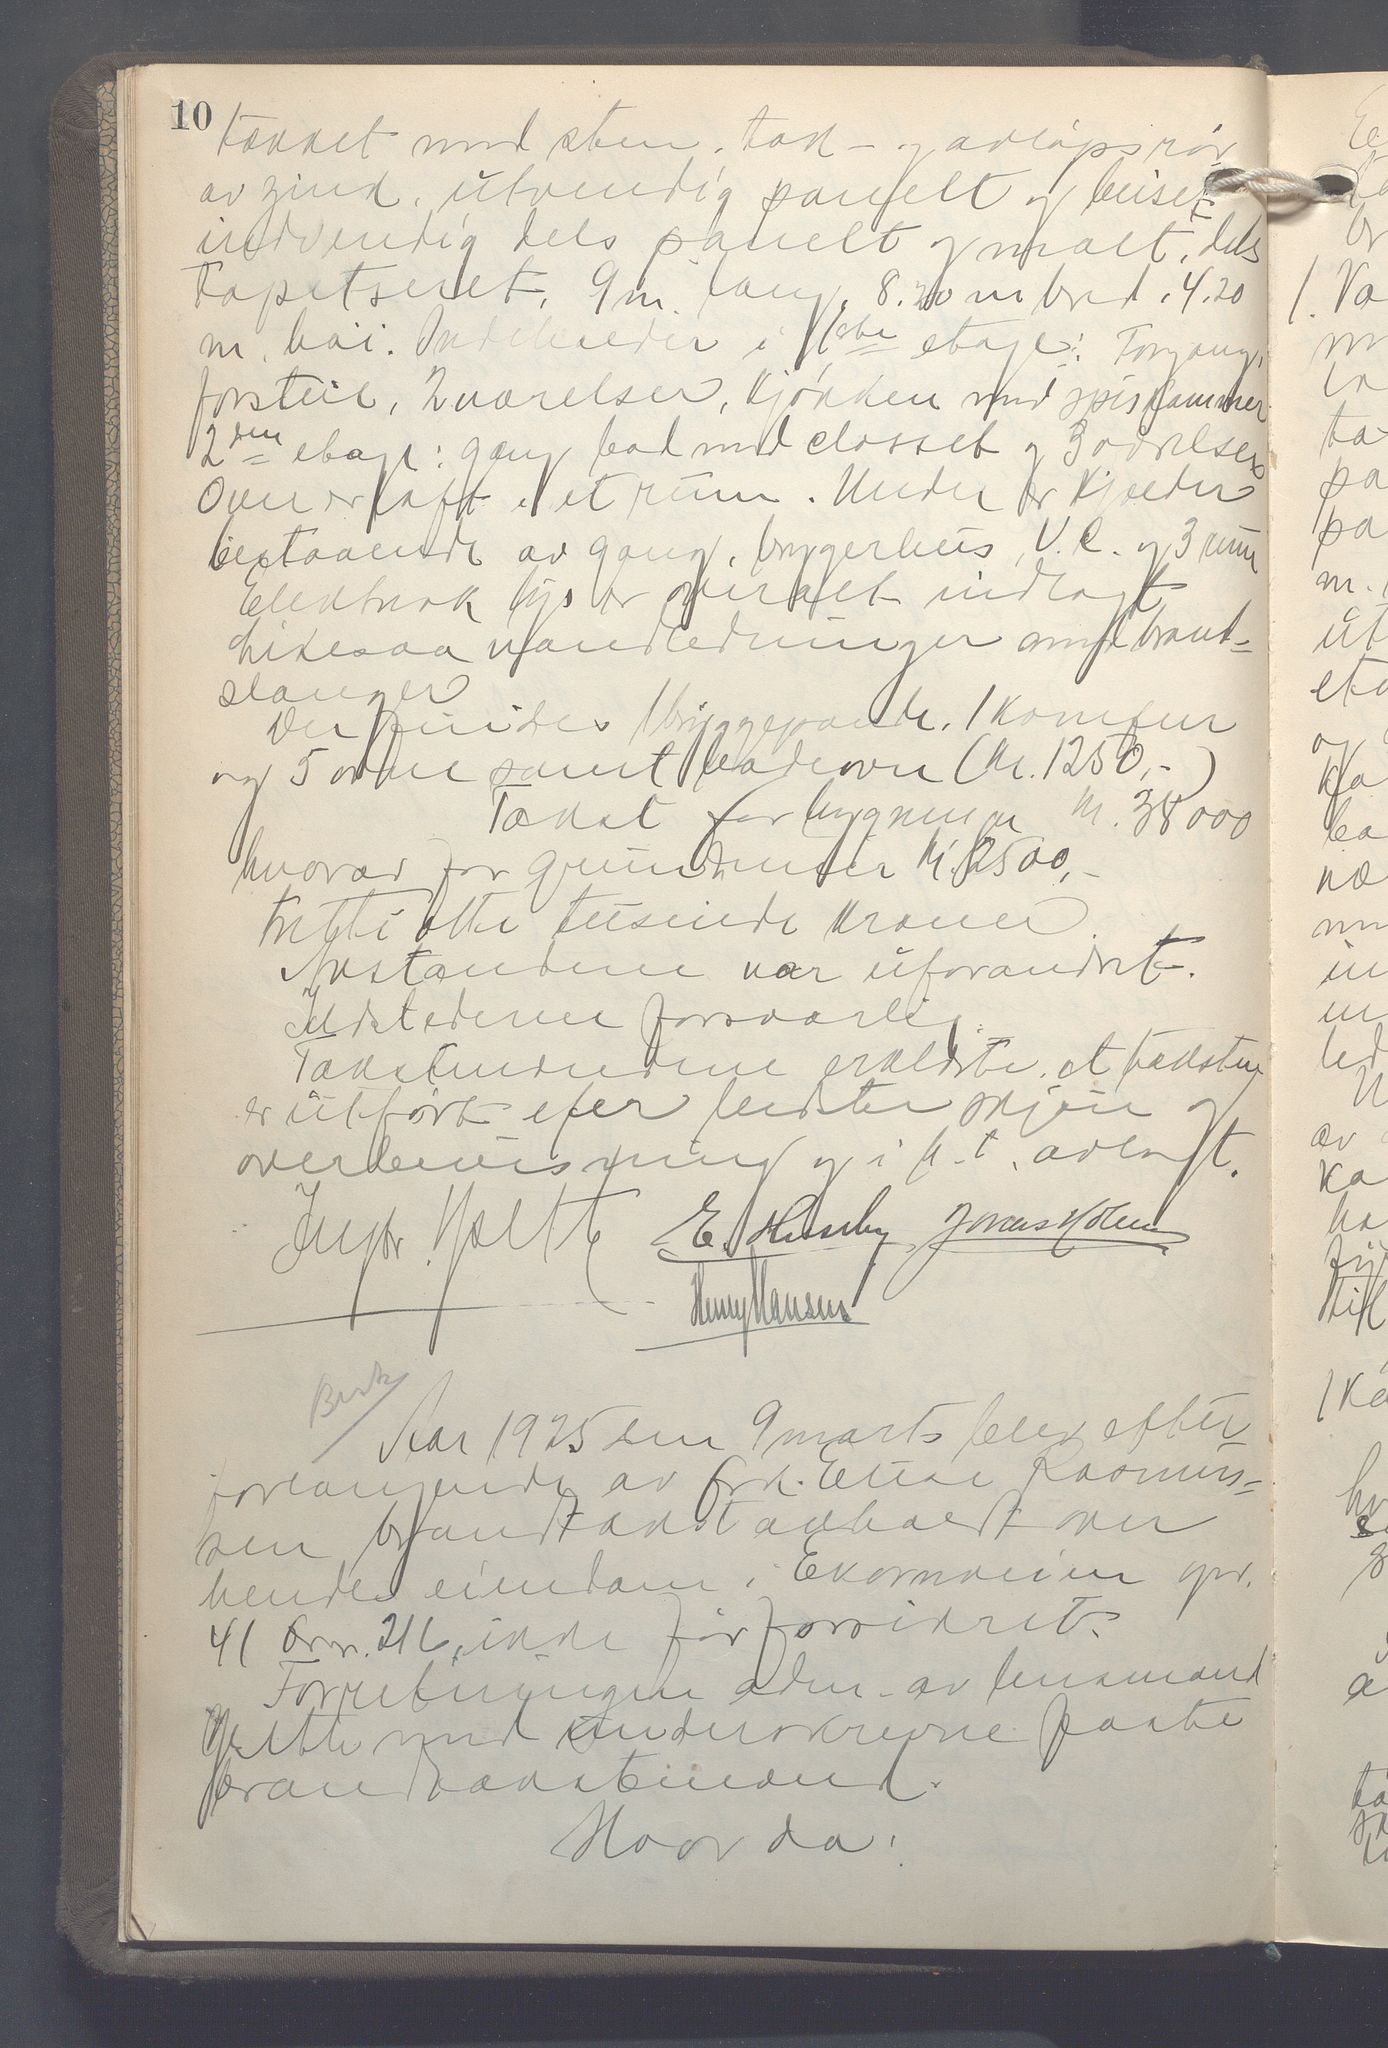 10
tækket med sten, tak- og avløpsrør
av zink, utvendig panelt og beiset
indvendig dels panelt og malt, dels
tapetseret, 9 m. lang, 8.20 m bred, 4.20
m. høi. Indeholder i 1ste etage: Forgang,
forstue, 2 værelser, kjøkken med spiskammer
2den etage: gang bad med closset og 3 værelser
Over er loft i et rum. Under er kjelder
bestaaende av gang, bryggerhus, V.C. og 3 rum
Elektrisk lys er overalt indlagt
Likesaa vandledninger med brand-
slanger
Der findes 1 bryggepande, 1 komfur
og 5 ovne samt badeovn (kr. 1250,-)
Takst for bygningen kr. 38000
hvorav for grundmur kr. 2500,-
tretti otte tusinde kroner
Avstandene var uforandret.
Ildstederne forsvarlig.
Takstmændene erklærte, at taksten
er utført efter bedste skjøn og
overbevisning og i h. t. avlagt.
Hjelte E. Huseby Jonas Holm
Henry Hansen
Aar 1925 den 9 marts blev efter
forlangende av frk. Elise Rasmus-
sen brandtakst avholdt over
hendes eiendom i Ekornveien gnr.
41 brnr. 216, ikke før forsikret.
Forretningen adm. av lensmand
Hjelte med underskrevne faste
brandtakstmænd.
Hvorda: